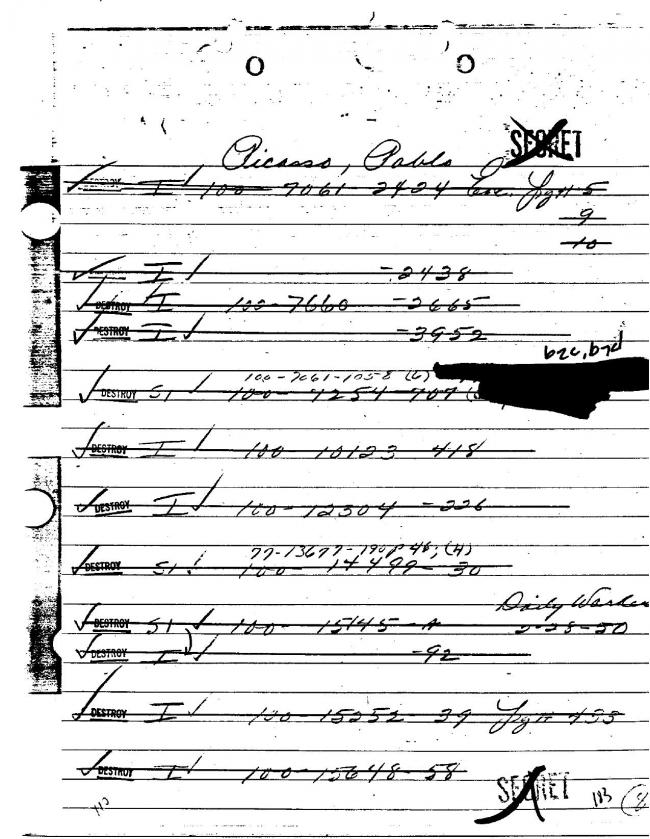 SECRET
Picasso, Pablo
I 100 - 7061 - 2424 Enc. Pg# 5
9
10
I - 2438
DESTROY I 100 - 7660 - 2665
DESTROY I - 3952
b7c, b7d
100-7061-105-8 (6)
DESTROY SI 100 - 7254 - 707
DESTROY I 100 - 10123 418
DESTROY I 100 - 12304 - 226
77-13677-190p 46; (4)
DESTROY SI 100 - 14499 - 30
Daily Worker
DESTROY SI 100 - 15145 - A 2-28-50
DESTROY I - 92
DESTROY I 100 - 15252 - 39 Pg# 433
DESTROY I 100 - 15648 - 58
SECRET
113 103 8